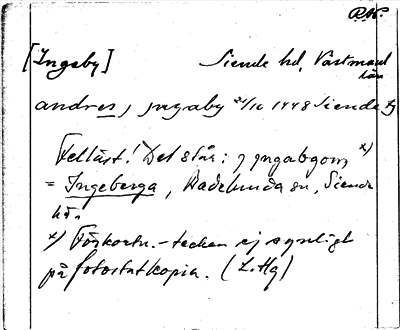 P.N.
[Ingeby] Siende hd, Västmanl
län
andres j yngaby 24/10 1448 Siende
Felläst! Det står: j yngabgom x)
= Ingeberga, Badelunda sn, Siende
hd.
x) Förkortn.-tecken ej synligt
på fotostatkopia. (L. Hg)